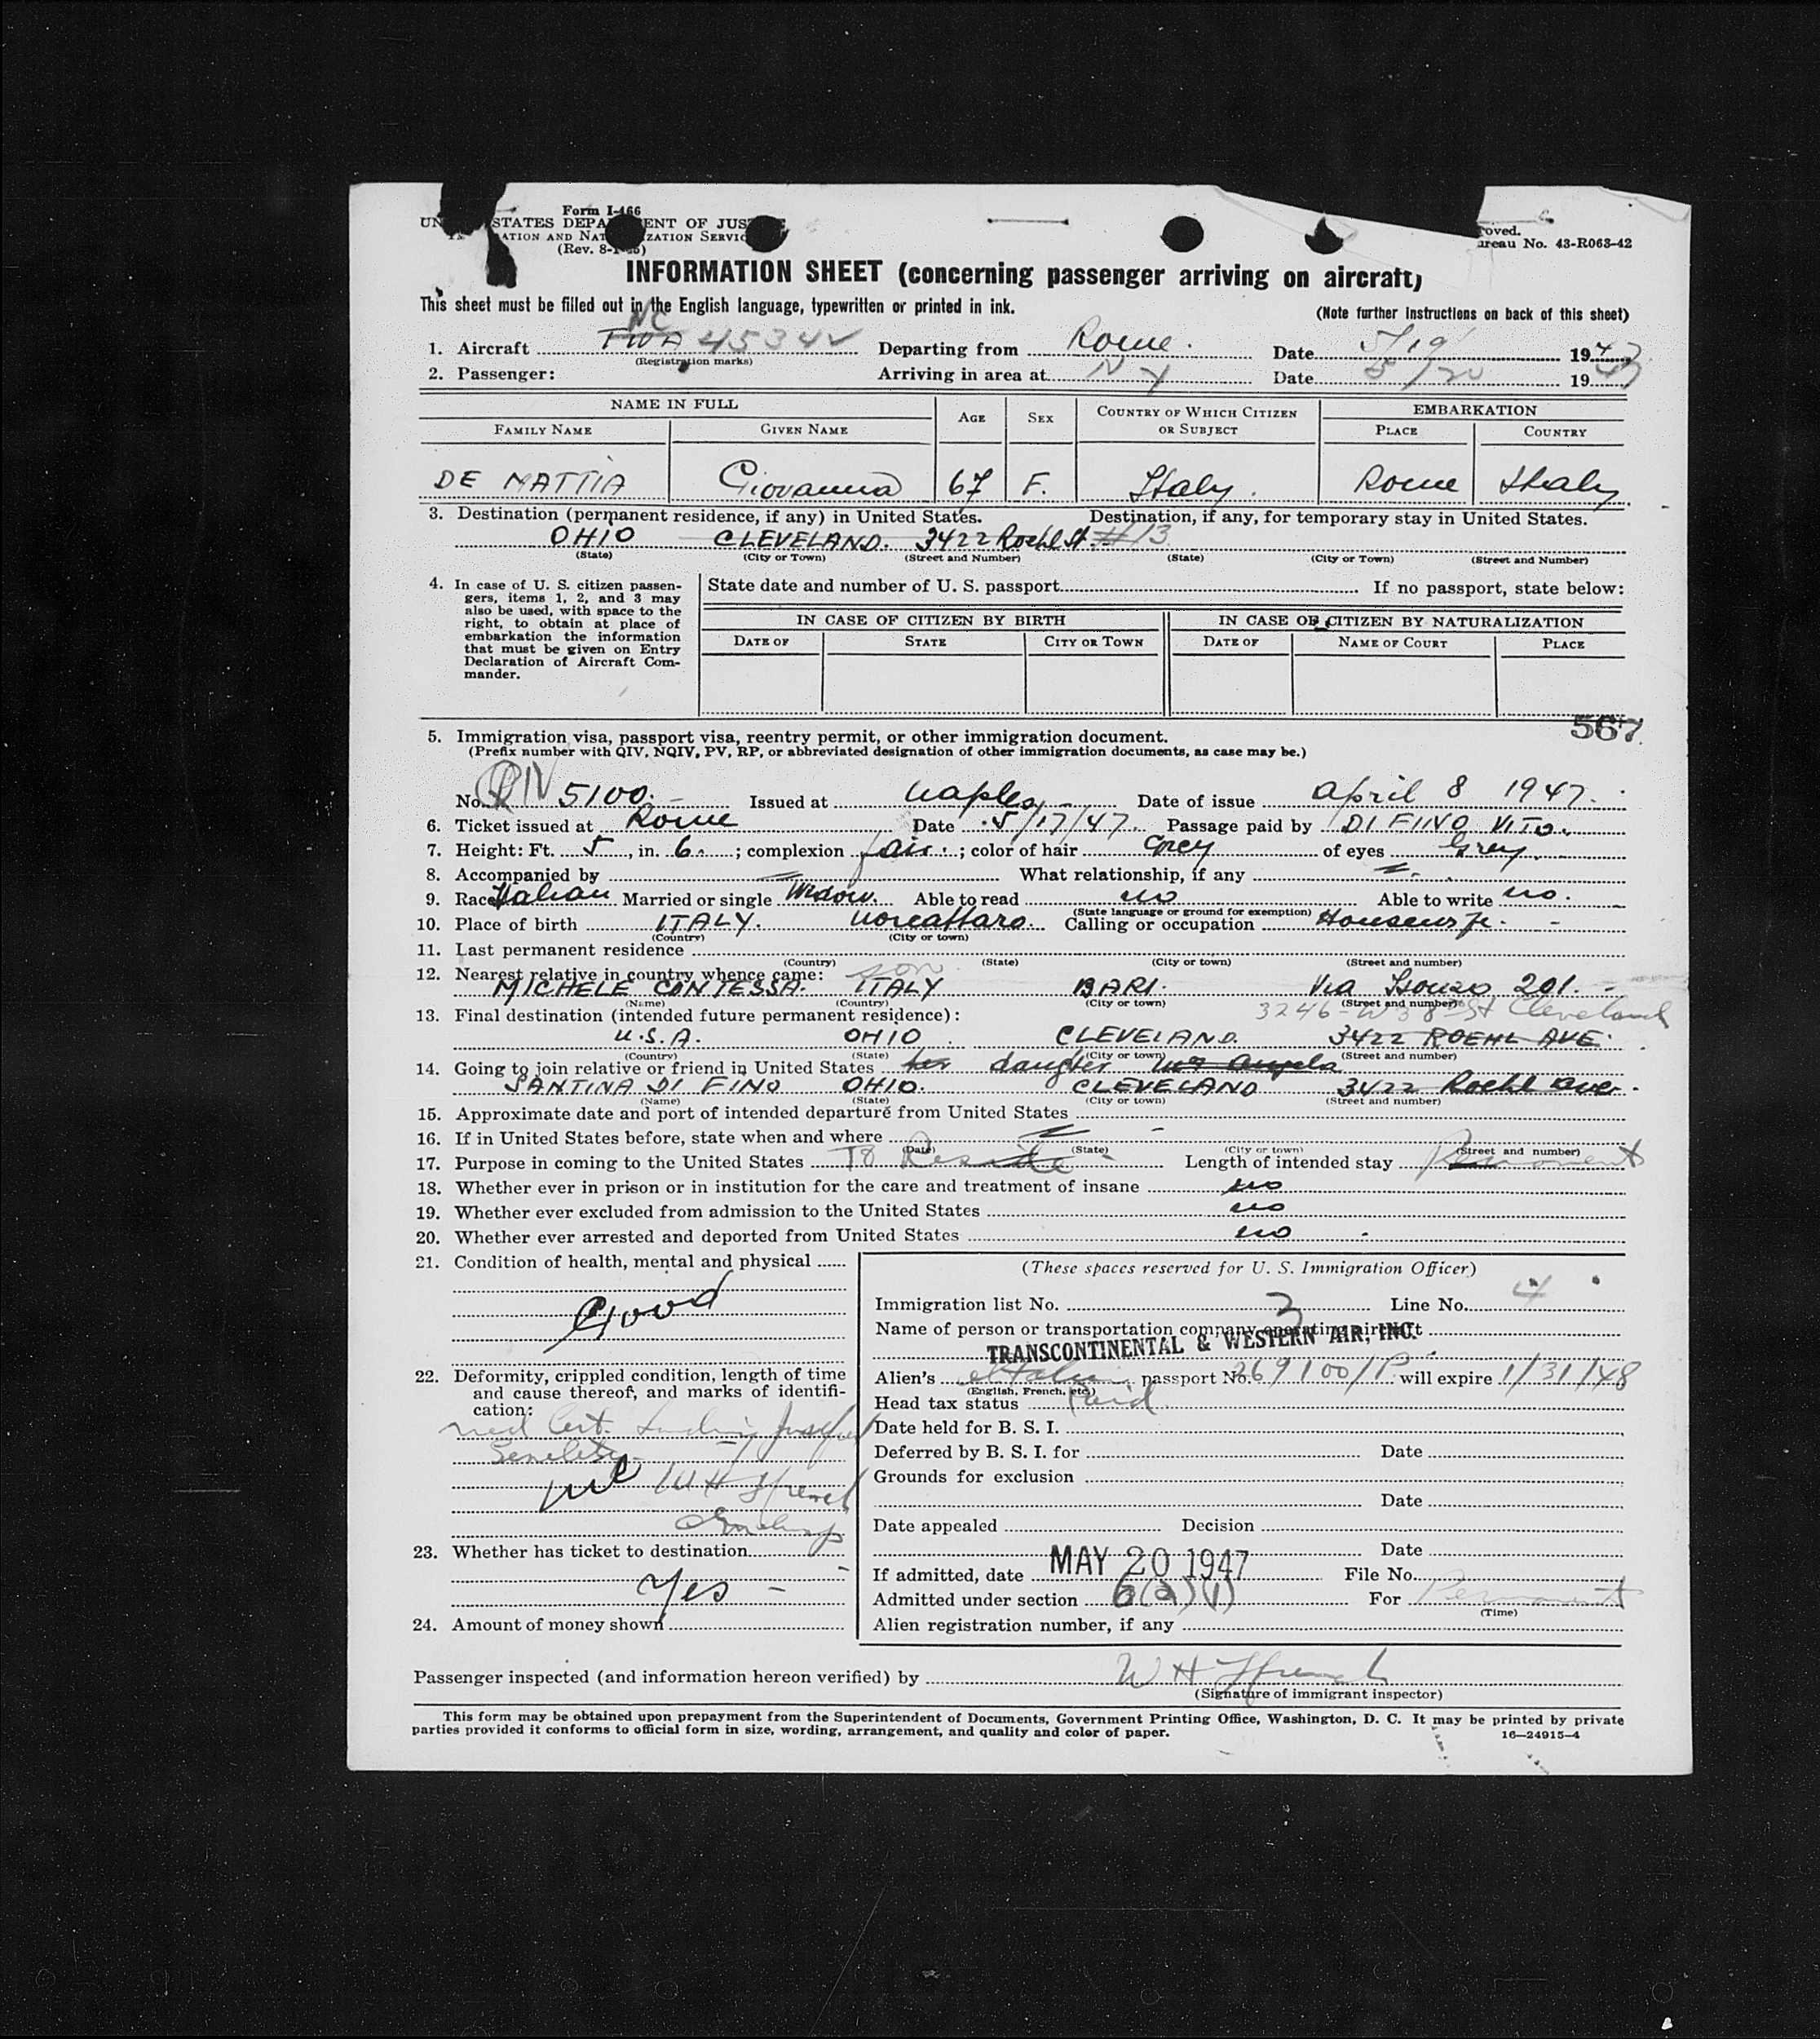 Form I-466
UN STATES DEPA ENT OF JUS
ATION AND NAT ZATION SERVIC
(Rev. 8-1-
roved.
ureau No. 43-R063-42
INFORMATION SHEET (concerning passenger arriving on aircraft)
This sheet must be filled out in the English language, typewritten or printed in ink.
(Note further instructions on back of this sheet)
NC
1. Aircraft TWA 4534 Departing from Rome. Date 5/19 1947
(Registration marks)
2. Passenger: Arriving in area at N Y Date 5/20 1947
NAME IN FULL AGE SEX COUNTRY OF WHICH CITIZEN OR SUBJECT EMBARKATION
FAMILY NAME GIVEN NAME PLACE COUNTRY
DE MATTIA Giovanna 67 F. Italy. Rome Italy
3. Destination (permanent residence, if any) in United States. Destination, if any, for temporary stay in United States.
OHIO CLEVELAND. 3422 Roehl St. #13
(State) (City or Town) (Street and Number) (State) (City or Town) (Street and Number)
4. In case of U. S. citizen passen-
gers, items 1, 2, and 3 may
also be used, with space to the
right, to obtain at place of
embarkation the information
that must be given on Entry
Declaration of Aircraft Com-
mander.
State date and number of U. S. passport If no passport, state below:
IN CASE OF CITIZEN BY BIRTH IN CASE OF CITIZEN BY NATURALIZATION
DATE OF STATE CITY OR TOWN DATE OF NAME OF COURT PLACE
567
5. Immigration visa, passport visa, reentry permit, or other immigration document.
(Prefix number with QIV, NQIV, PV, RP, or abbreviated designation of other immigration documents, as case may be.)
No. QIV 5100. Issued at Naples Date of issue April 8 1947.
6. Ticket issued at Rome Date 5/17/47. Passage paid by DI FINO VITO.
7. Height: Ft. 5, in. 6. ; complexion fair. ; color of hair Grey of eyes Grey.
8. Accompanied by What relationship, if any
9. Race Italian Married or single Widow. Able to read no Able to write no.
(State language or ground for exemption)
10. Place of birth ITALY. Noicattaro. Calling or occupation Housewife.
(Country) (City or town)
11. Last permanent residence
(Country) (State) (City or town) (Street and number)
12. Nearest relative in country whence came: son
MICHELE CONTESSA. ITALY BARI. Via Isonzo 201.
(Name) (Country) (City or town) (Street and number)
3246-W 38 St Cleveland
13. Final destination (intended future permanent residence):
U.S.A. OHIO CLEVELAND. 3422 ROEHL AVE.
(Country) (State) (City or town) (Street and number)
14. Going to join relative or friend in United States her daugter Angela
SANTINA DI FINO OHIO. CLEVELAND 3422 Roehl ave.
(Name) (State) (City or town) (Street and number)
15. Approximate date and port of intended departure from United States
16. If in United States before, state when and where
(Date) (State) (City or town) (Street and number)
17. Purpose in coming to the United States To Reside Length of intended stay Permanent
18. Whether ever in prison or in institution for the care and treatment of insane no
19. Whether ever excluded from admission to the United States no
20. Whether ever arrested and deported from United States no
21. Condition of health, mental and physical
Good
22. Deformity, crippled condition, length of time
and cause thereof, and marks of identifi-
cation:
med Cert.
Senility
W H Ffrench
23. Whether has ticket to destination
Yes -
24. Amount of money shown
(These spaces reserved for U. S. Immigration Officer)
Immigration list No. 3 Line No. 4
Name of person or transportation company operating aircraft
TRANSCONTINENTAL & WESTERN AIR, INC.
Alien's Italian passport No. 269100/P will expire 1/31/48
(English, French, etc.)
Head tax status Paid
Date held for B. S. I.
Deferred by B. S. I. for Date
Grounds for exclusion
Date
Date appealed Decision
Date
If admitted, date MAY 20 1947 File No.
Admitted under section 6(a)(1) For Permanent
(Time)
Alien registration number, if any
Passenger inspected (and information hereon verified) by W H Ffrench
(Signature of immigrant inspector)
This form may be obtained upon prepayment from the Superintendent of Documents, Government Printing Office, Washington, D. C. It may be printed by private
parties provided it conforms to official form in size, wording, arrangement, and quality and color of paper. 16—24915-4